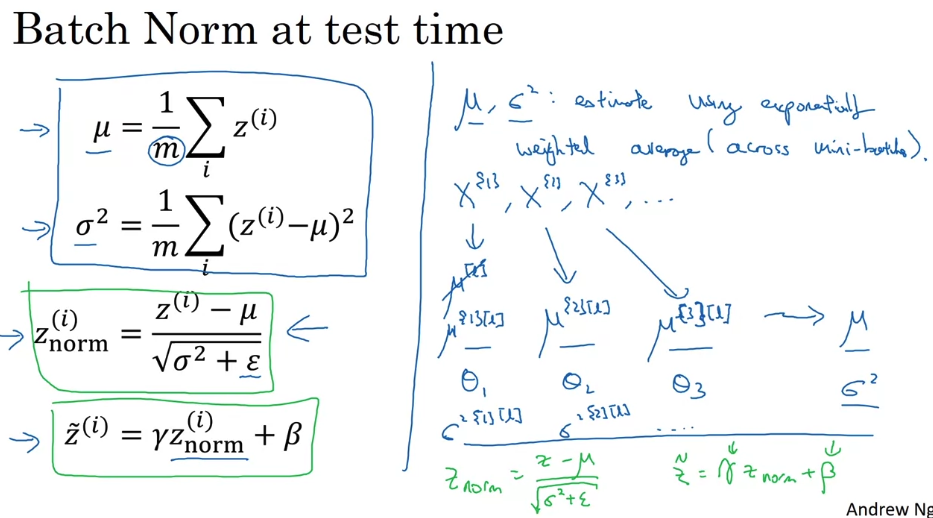 Batch Norm at test time
μ = 1/m ∑_i z^(i)
σ² = 1/m ∑_i (z^(i)−μ)²
z_norm^(i) = (z^(i) − μ)/√(σ² + ε)
z̃^(i) = γz_norm^(i) + β
μ, σ² : estimate using exponentially
weighted average (across mini-batches).
X^{1}, X^{2}, X^{3}, ...
μ^{1}[l] μ^{2}[l] μ^{3}[l] → μ
θ₁ θ₂ θ₃ σ²
σ²^{1}[l] σ²^{2}[l] ....
z_norm = (z − μ)/√(σ²+ε) z̃ = γ z_norm + β
Andrew Ng